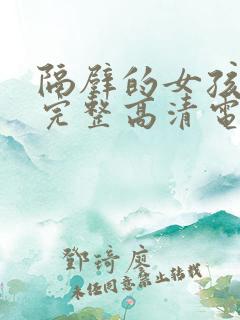 隔壁的女孩
完整高清电
鄧琦庭
未经同意禁止转载